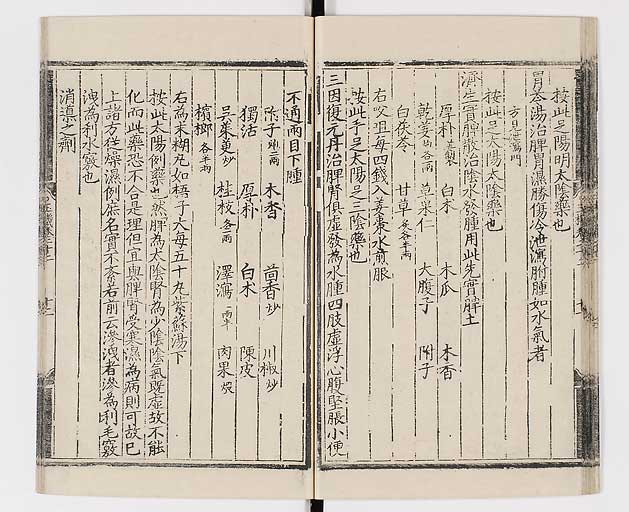 按此足陽明太陰藥也
胃苓湯治脾胃濕勝傷冷泄瀉胕腫如水氣者
方見泄瀉門
按此足太陽太陰藥也
濟生實脾散治陰水發腫用此先實脾土
厚朴 薑製 白木 木瓜 木香
乾姜 炮各一兩 草果仁 大腹子 附子
白茯苓 甘草 炙各半兩
右㕮咀每四錢入姜棗水煎服
按此手足太陽足三陰藥也
三因復元丹治脾腎俱虛發為水腫四肢虛浮心腹堅脹小便
不通兩目下腫
附子 炮二兩 木香 茴香 炒 川椒 炒
獨活 厚朴 白木 陳皮
吴茱萸 炒 桂枝 各一兩 澤瀉 肉果 煨
檳榔 各半兩
右為末糊丸如梧子大每五十丸紫蘇湯下
按此太陽例藥也然脾為太陰腎為少陰陰氣既虛故不能
化而此藥恐不合是理但宜與脾腎受寒濕為病則可故巳
上諸方從燥濕例庶名實不紊若前云滲洩者滲為利毛竅
洩為利水竅也
消瀆之劑